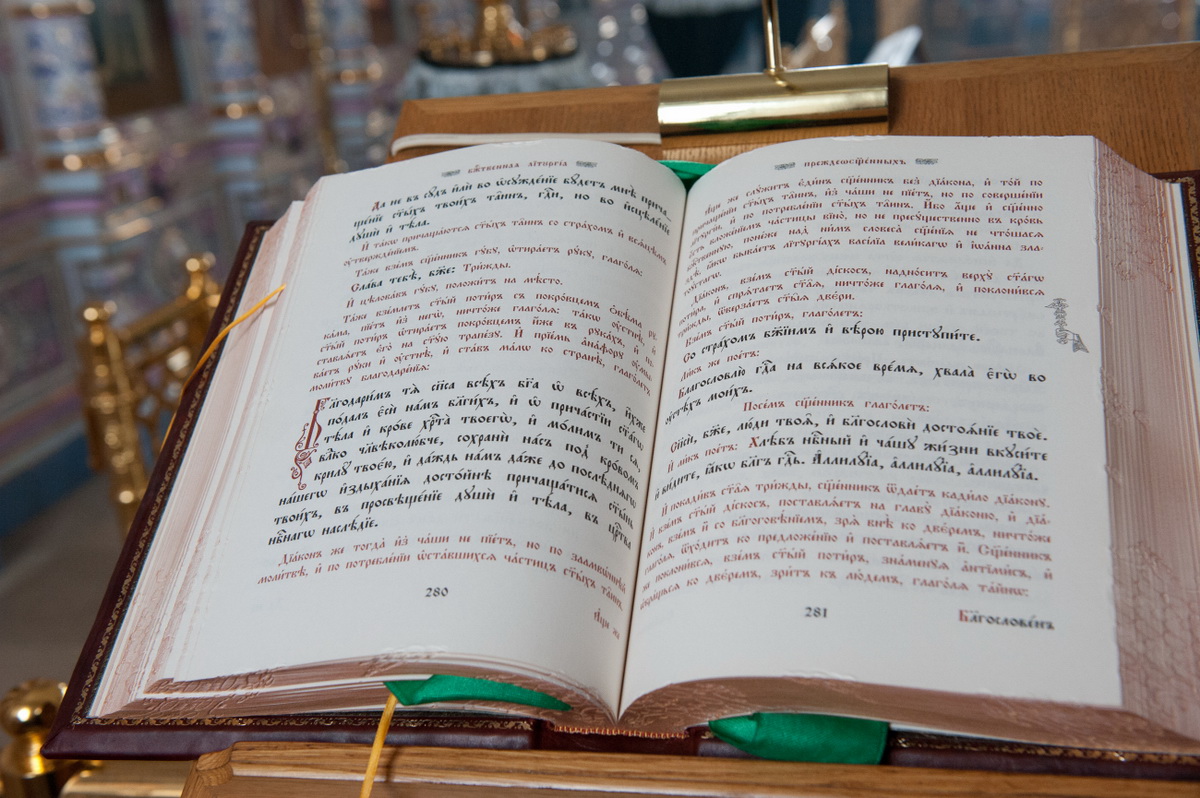 Бжⷭ҇твеннаѧ лїтꙋргі́а
Да не въ сꙋ́дъ и҆лѝ во ѡ҆сꙋжде́нїе бꙋ́детъ мнѣ̀ прича-
ще́нїе ст҃ы́хъ твои́хъ та̑инъ, гдⷭ҇и, но во и҆сцѣле́нїе
дꙋшѝ и҆ тѣ́ла.
И҆ та́кѡ причаща́ютсѧ ст҃ы́хъ та̑инъ со стра́хомъ и҆ всѧ́цѣмъ
ᲂу҆твержде́нїемъ.
Та́же взе́мъ сщ҃е́нникъ гꙋ́бꙋ, ѡ҆тира́етъ рꙋ́кꙋ, глаго́лѧ:
Сла́ва тебѣ̀, бж҃е: Три́жды.
И҆ цѣлова́въ гꙋ́бꙋ, положи́тъ на мѣ́сто.
Та́же взима́етъ ст҃ы́й поти́ръ съ покро́вцемъ ѻ҆бѣ́ма рꙋ-
ка́ма, пїе́тъ и҆з̾ негѡ̀, ничто́же глаго́лѧ: та́кѡ ᲂу҆стнѣ̀, и҆
ст҃ы́й поти́ръ ѡ҆тира́етъ покро́вцемъ и҆́же въ рꙋка́хъ, и҆ по-
ставлѧ́етъ є҆го̀ на ст҃ꙋ́ю трапе́зꙋ. И҆ прїе́мь а҆нафо́рꙋ ᲂу҆мы-
ва́етъ рꙋ́ки и҆ ᲂу҆стнѣ̀, и҆ ста́въ ма́лѡ ко странѣ̀, глаго́летъ
моли́твꙋ благодаре́нїѧ:
Благодари́мъ тѧ̀ сп҃са всѣ́хъ бг҃а ѡ҆ всѣ́хъ, ꙗ҆̀же
по́далъ є҆сѝ на́мъ бл҃ги́хъ, и҆ ѡ҆ прича́стїи ст҃а́гѡ
тѣ́ла и҆ кро́ве хрⷭ҇та̀ твоегѡ̀, и҆ мо́лимъ ти́ сѧ,
влⷣко чл҃вѣколю́бче, сохранѝ на́съ под̾ кро́вомъ
крилꙋ̀ твоє́ю, и҆ да́ждь на́мъ да́же до послѣ́днѧгѡ
на́шегѡ и҆здыха́нїѧ досто́йнѣ причаща́тисѧ ст҃ы́нь
твои́хъ, въ просвѣще́нїе дꙋшѝ и҆ тѣ́ла, въ црⷭ҇твїѧ
нбⷭ҇нагѡ наслѣ́дїе.
Дїа́конъ же тогда̀ и҆з̾ ча́ши не пїе́тъ, но по заамвѡ́ннѣй
моли́твѣ, и҆ по потребле́нїи ѡ҆ста́вшихсѧ части́цъ ст҃ы́хъ та̑инъ.
280
А҆́ще же
преждеѡсщ҃е́нныхъ
А҆́ще же слꙋ́житъ є҆ди́нъ сщ҃е́нникъ без̾ дїа́кона, и҆ то́й по
причаще́нїи ст҃ы́хъ та̑инъ, и҆з̾ ча́ши не пїе́тъ, но по соверше́нїи
лїтꙋргі́и, и҆ по потребле́нїи ст҃ы́хъ та̑инъ. Ꙗ҆́кѡ а҆́ще и҆ сщ҃е́нно
є҆́сть вложе́нїемъ части́цы вїно̀, но не пресꙋ́щественно въ кро́вь
бжⷭ҇твеннꙋю, поне́же над̾ ни́мъ словеса̀ сщ҃е́нїѧ не что́шасѧ
здѣ̀, ꙗ҆́кѡ быва́етъ лїтꙋргі́ахъ васі́лїа вели́кагѡ и҆ і҆ѡа́нна зла-
тоꙋ́стагѡ.
Дїа́конъ, взе́мъ ст҃ы́й ді́скосъ, надно́ситъ верхꙋ̀ ст҃а́гѡ
поти́ра, и҆ спрѧта́етъ ст҃а̑ѧ, ничто́же глаго́лѧ, и҆ поклони́всѧ
три́жды, ѿверза́етъ ст҃ы̑ѧ две́ри.
Взе́мъ ст҃ы́й поти́ръ, глаго́летъ:
Со стра́хомъ бж҃їимъ и҆ вѣ́рою пристꙋпи́те.
Ли́къ же пое́тъ:
Благословлю̀ гдⷭ҇а на всѧ́кое вре́мѧ, хвала̀ є҆гѡ̀ во
ᲂу҆стѣ́хъ мои́хъ.
Посе́мъ сщ҃е́нникъ глаго́летъ:
Сп҃сѝ, бж҃е, лю́ди твоѧ̑, и҆ бл҃гословѝ достоѧ́нїе твоѐ.
И҆ ли́къ пое́тъ: Хлѣ́бъ нбⷭ҇ный и҆ ча́шꙋ жи́зни вкꙋси́те
и҆ ви́дите, ꙗ҆́кѡ бл҃гъ гдⷭ҇ь. А҆ллилꙋ́їа, а҆ллилꙋ́їа, а҆ллилꙋ́їа.
И҆ покади́въ ст҃а̑ѧ три́жды, сщ҃е́нникъ ѿдае́тъ кади́ло дїа́конꙋ.
И҆ взе́мъ ст҃ы́й ді́скосъ, поставлѧ́етъ на главꙋ̀ дїа́конꙋ, и҆ дїа́-
конъ, взе́мъ и҆̀ со бл҃гоговѣ́нїемъ, зрѧ̀ внѣ̀ ко две́ремъ, ничто́же
глаго́лѧ, ѿхо́дитъ ко предложе́нїю и҆ поставлѧ́етъ и҆̀. Сщ҃е́нникъ
же поклони́всѧ, взе́мъ ст҃ы́й поти́ръ, зна́менꙋѧ а҆нтїми́нсъ, и҆
ѡ҆бра́щьсѧ ко две́ремъ, зри́тъ къ лю́демъ, глаго́лѧ та́йнѡ:
281
Бл҃гослове́нъ